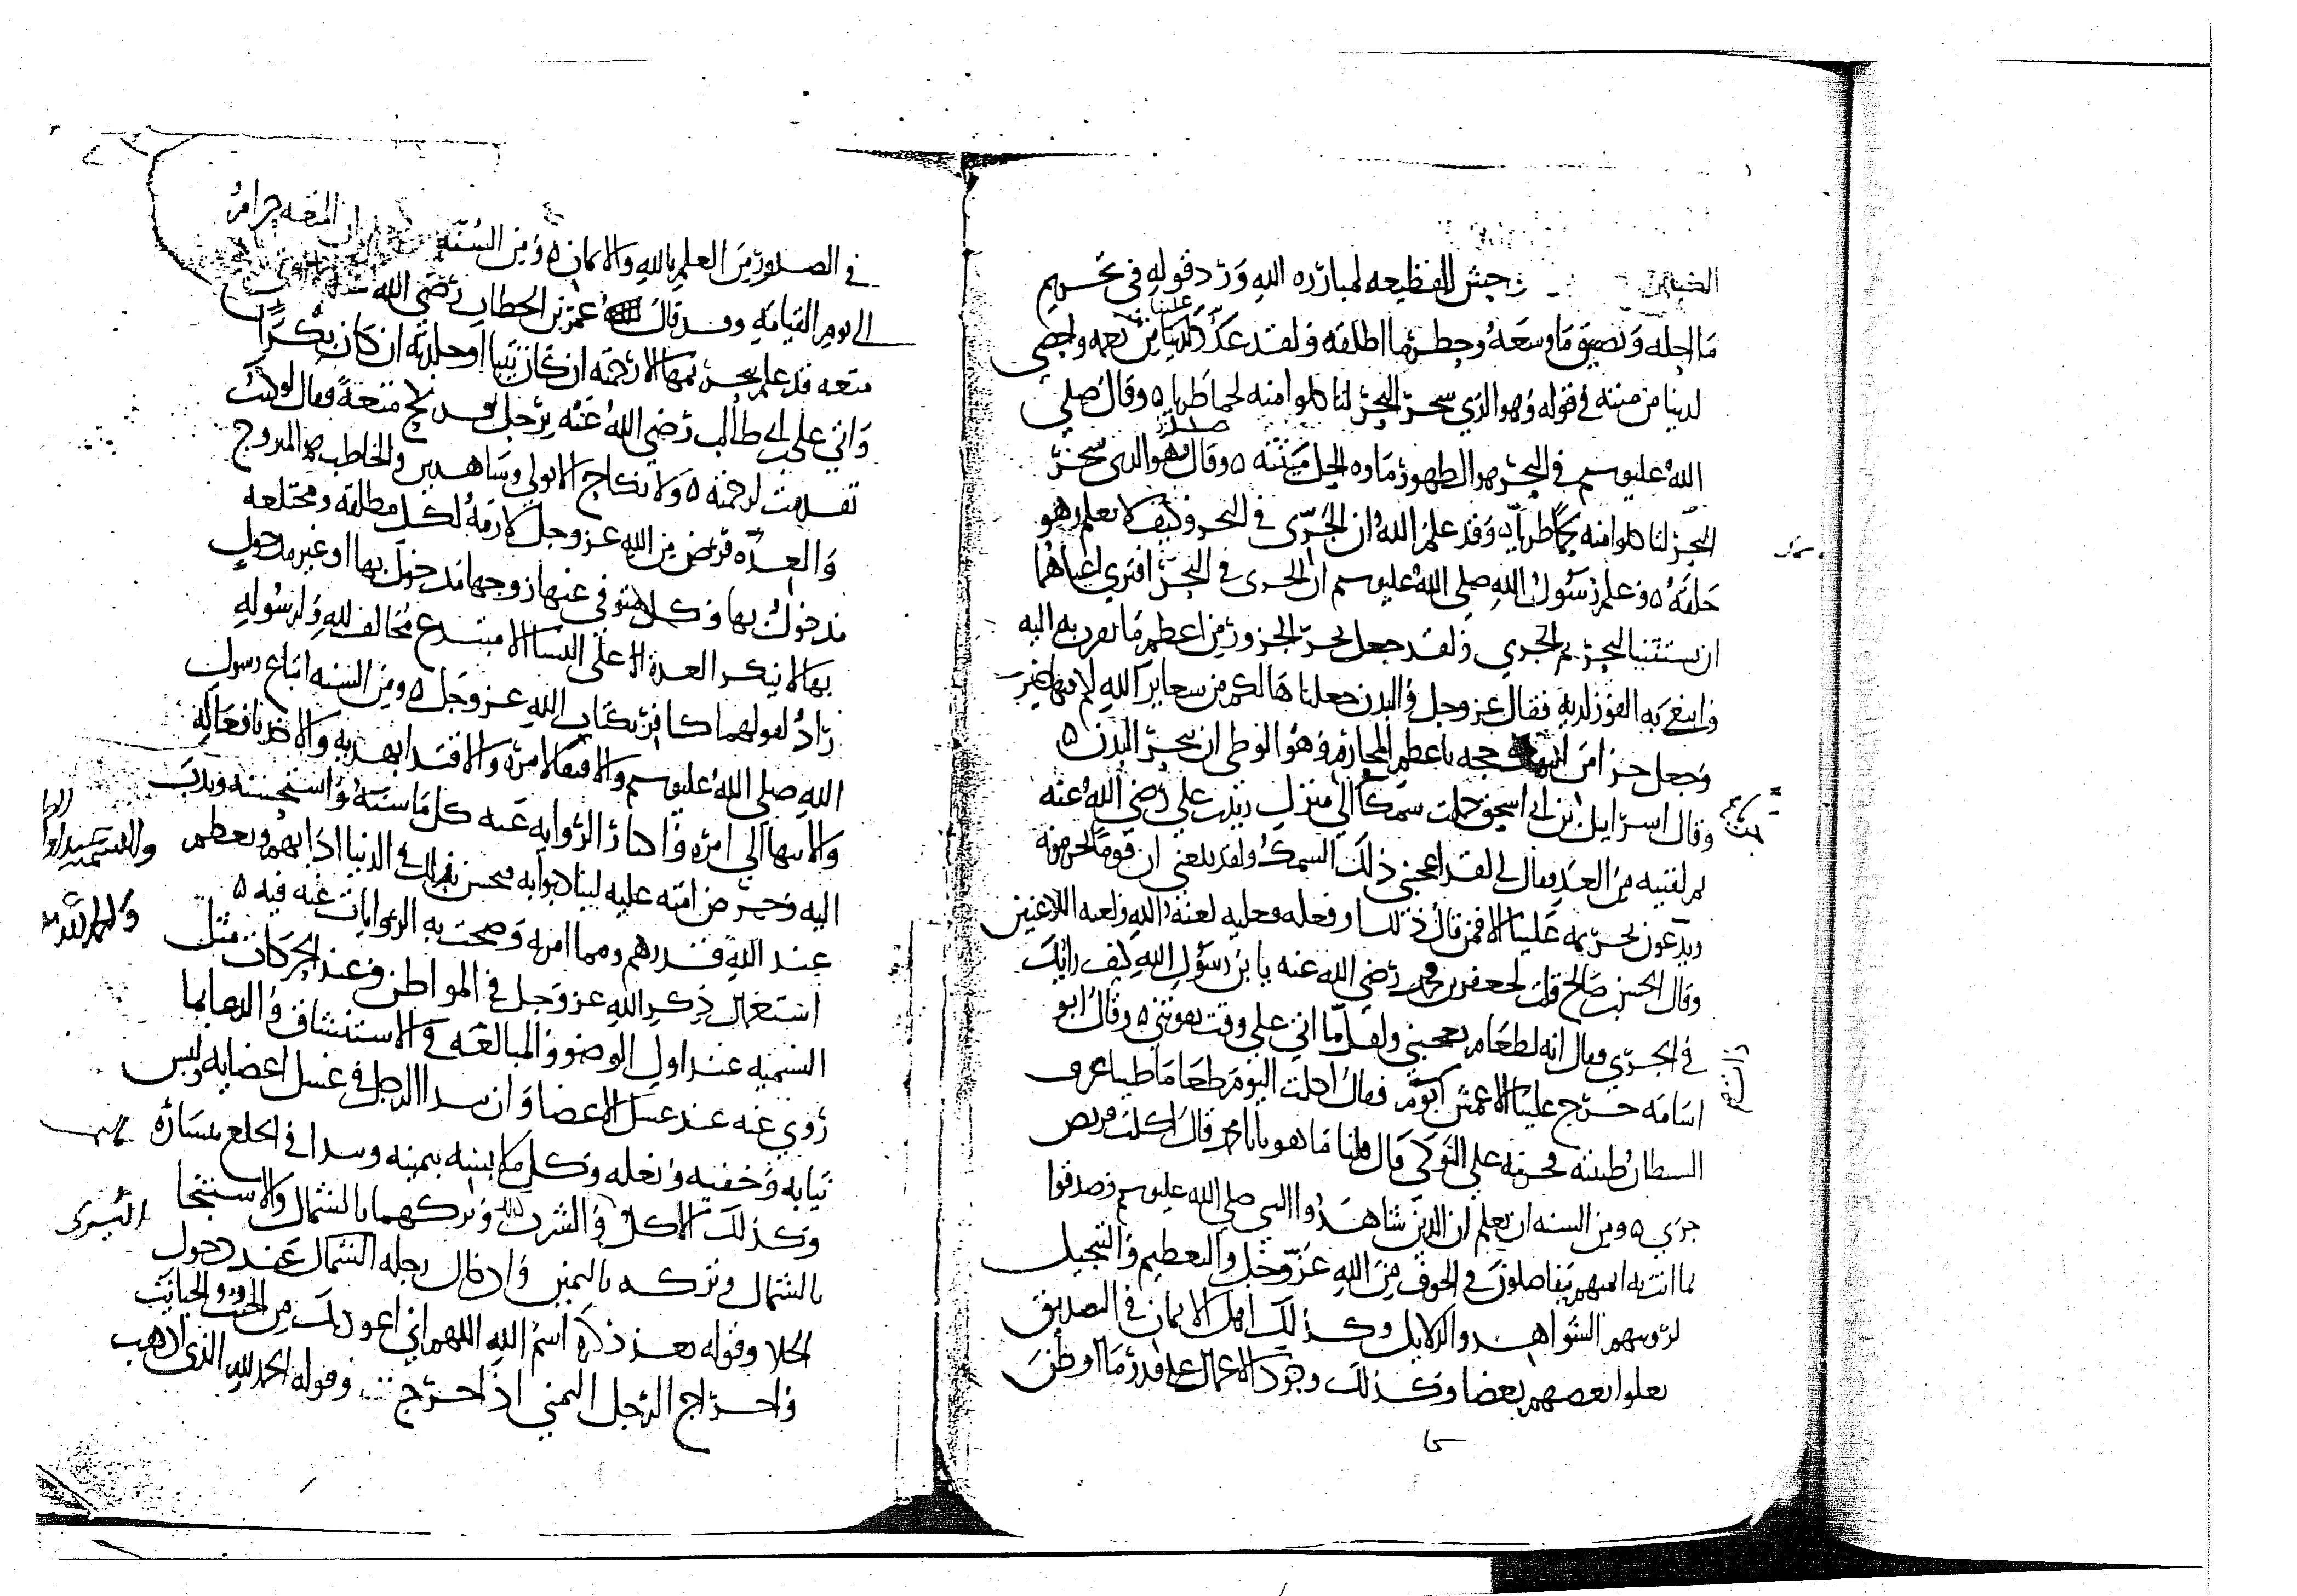 وحش الفظيعه لمبارزه الله ورد قوله في تحريم
ما احله وتضييق ما وسعه وحظر ما اطلقه ولقد عدد علينا من نعمه واحصى
لدينا من مننه في قوله وهو الذي سخر البحر لتاكلوا منه لحما طريا ٥ وقال صلى
الله عليه وسلم في البحر هو الطهور ماوه الحل ميتته ٥ وقال وهو الذي سخر
البحر لتاكلوا منه لحما طريا ٥ وقد علم الله ان الجري في البحر وكيف لا يعلم وهو
خلقه ٥ وعلم رسول الله صلى الله عليه وسلم ان الجري في البحر افترى اعياهما
ان يستثنيا البحر ثم الجري ولقد جعل نحر الجزور من اعظم ما تقرب به اليه
وابتغي به الفوز لديه فقال عز وجل والبدن جعلناها لكم من شعاير الله لكم فيها خير
وجعل جزا من حجه باعظم المحارم وهو الوطي ان ينحر البدن ٥
وقال اسرايل بن ابي اسحق حملت سمكا الى منزل علي رضي الله عنه
ثم لقيته من الغد فقال لي لقد اعجبني ذلك السمك ولقد بلغني ان قوما يحرمونه
ويدعون تحريمه علينا الا فمن قال ذلك او فعله فعليه لعنة الله ولعنة اللاعنين
وقال الحسن بن صالح قلت لجعفر بن محمد رضي الله عنه يا بن رسول الله كيف رايك
في الجري فقال انه لطعام يعجبني ولقل ما اتى علي وقت يفوتني ٥ وقال ابو
اسامه خرج علينا الاعمش يوم فقال اكلت اليوم طعاما طيبا عرف
السطان طيبته فحرمه على النوكى قال قلنا ما هو يا با محمد قال اكلت قريص
جري ٥ ومن السنه ان يعلم ان الذين شاهدوا النبي صلى الله عليه وسلم وصدقوا
لما اتت به يتفاضلون في الخوف من الله عز وجل والتعظيم والتبجيل
لرويتهم الشواهد والدلايل وكذلك اهل الايمان في التصديق
يعلوا بعضهم بعضا وكذلك وجود الاعمال على قدر ما اوطن
في الصدور من العلم بالله والايمان ٥ ومن السنه ان المتعه حرام
الى يوم القيامه وقد قال عمر بن الخطاب رضي الله
متعه قد علم تحريمها الا رجمته ان كان ثيبا او جلدته ان كان بكرا
واتي علي بن ابي طالب رضي الله عنه برجل قد نكح متعة فقال لو كنت
تقدمت لرجمته ٥ ولا نكاح الا بولي وشاهدين والخاطب هو المزوج
والعده فرض من الله عز وجل لازمه لكل مطلقه ومختلعه
مدخول بها وكل متوفى عنها زوجها مدخول بها او غير مدخول
بها لا ينكر العده على النسا الا مبتدع مخالف لله ولرسوله
راد لقولهما كافر بكتاب الله عز وجل ٥ ومن السنه اتباع رسول
الله صلى الله عليه وسلم والاقتفا لامره والاقتدا بهديه والاخذ بافعاله
والانتها الى امره واكثار الروايه عنه كل ما سنه واستحسنه وندب
اليه وحرض امته عليه ليتادبوا به فتحسن بذلك في الدنيا ادابهم ويعظم
عند الله قدرهم ومما امر به وصحت به الروايات عنه فيه ٥
استعمال ذكر الله عز وجل في المواطن وعند الحركات مثل
التسميه عند اول الوضو والمبالغه في الاستنشاق والدعا بما
روي عنه عند غسل الاعضا وان يبدا الرجل في غسل اعضايه ولبس
ثيابه وخفيه ونعله وكل ما لبسه بيمينه ويبدا في الخلع بيساره
وكذلك الاكل والشرب وتركهما بالشمال والاستنجا
بالشمال وتركه باليمين وادخال رجله الشمال عند دخول
الخلا وقوله بعد ذكره اسم الله اللهم اني اعوذ بك من الخبث والخبايث
واخراج الرجل اليمنى اذا خرج وقوله الحمد لله الذي اذهب
اليسرى